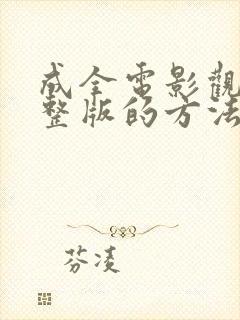 成全電影觀
整版的方法
芬凌